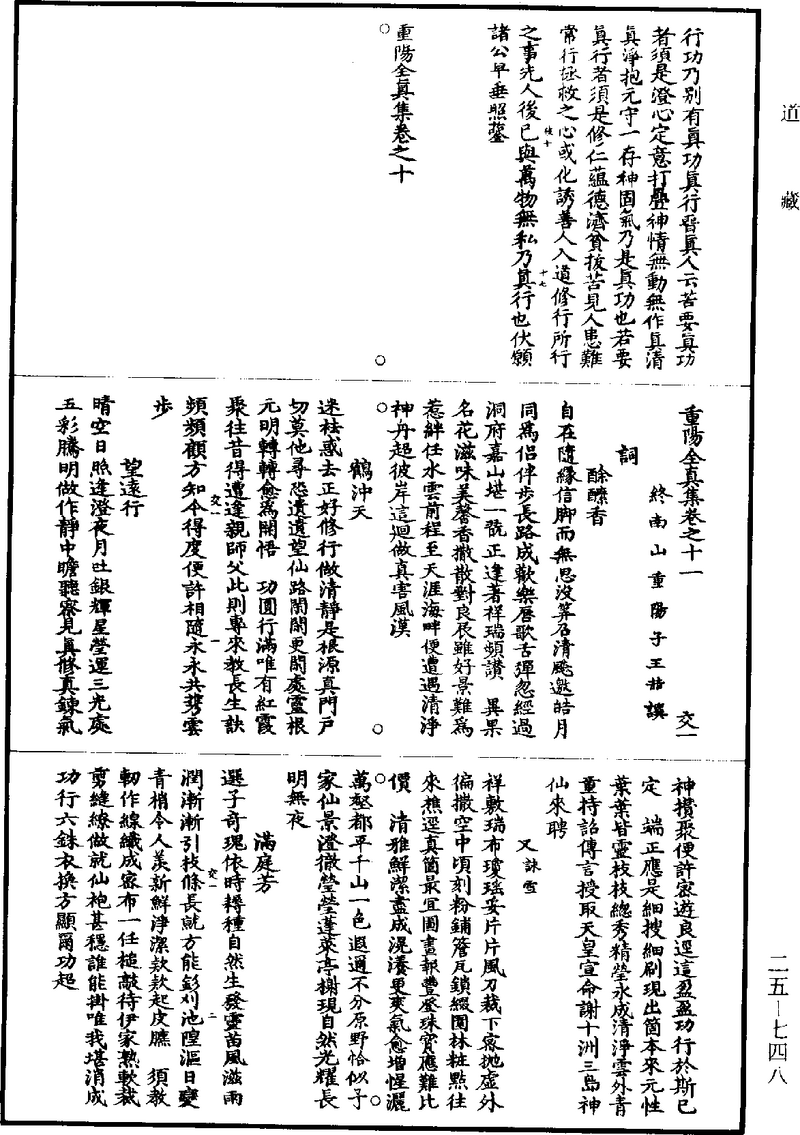 道藏
行功乃別有真功真行晉真人云若要真功
者須是澄心定意打疊神情無動無作真清
真淨抱元守一存神固氣乃是真功也若要
真行者須是修仁蘊德濟貧拔苦見人患難
常行拯救之心或化誘善人入道修行所行
之事先人後己與萬物無私乃真行也伏願
諸公早垂照鑒
重陽全真集卷之十
十七
重陽全真集卷之十一
交一
終南山重陽子王嚞譔
詞
酴醾香
自在隨緣信脚而無思没算召清飈邀皓月
同為侶伴步長路成歡樂唇歌舌彈忽經過
洞府嘉山堪一翫正逢著祥瑞頻讃　異果
名花滋味美馨香撒散對良辰雖好景難為
惹絆任水雲前程至天涯海畔便遭遇清淨
神丹超彼岸這迴做真害風漢
鶴沖天
迷袪惑去正好修行做清靜是根源真門戶
切莫他尋恐遺遺望仙路閑閑更閑處靈根
元明轉轉愈為開悟　功圓行滿唯有紅霞
聚往昔得遭逢親師父此則專來教長生訣
頻頻顧方知今得度便許相隨永永共攀雲
步
交一
一
望遠行
晴空日照逢澄夜月吐銀輝星瑩運三光處
五彩騰明做作靜中瞻聽察見真修真鍊氣
神攢聚便許密遊良逕這盈盈功行於斯已
定　端正應是細搜細刷現出箇本來元性
葉葉皆靈枝枝總秀精瑩永成清淨雲外青
童持詔傳言授取天皇宣命謝十洲三島神
仙來聘
又　詠雪
祥敷瑞布瓊瑤妥片片風刀裁下密拋虛外
徧撒空中頃刻粉鋪簷瓦鎖綴園林粧點往
來樵逕真箇最宜圖畫報豐登珠寶應難比
價　清雅鮮潔盡成滉瀁更爽氣愈增惺灑
萬壑都平千山一色遐邇不分原野恰似子
家仙景澄徹瑩瑩蓬萊亭榭現自然光耀長
明無夜
滿庭芳
選子奇瑰依時耨種自然生發靈苗風滋雨
潤漸漸引枝條長就方能彭刈池隍漚日變
青梢令人羨新鮮淨潔款款起皮臕　須教
韌作線織成密布一任槌敲待伊家熟軟裁
剪縫繚做就仙袍甚穩誰能掛唯我堪消成
功行六銖衣換方顯爾功超
交一
二
二五－七四八